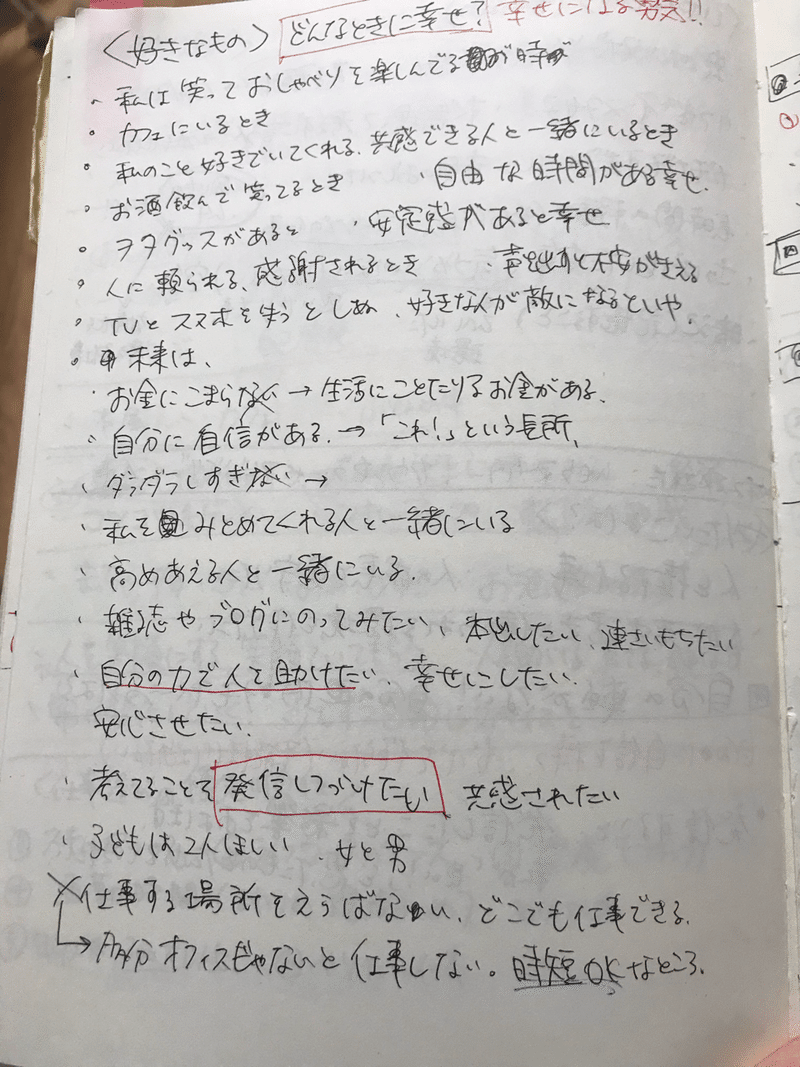 〈好きなもの〉 どんなときに幸せ? 幸せになる勇気!!
・私は笑っておしゃべりを楽しんでる時が
・カフェにいるとき
・私のこと好きでいてくれる、共感できる人と一緒にいるとき
・お酒飲んで笑ってるとき ・自由な時間がある幸せ.
・ヲタグッズがあると ・安定感があると幸せ
・人に頼られる、感謝されるとき ・声を出すと不安がきえる
・TVとスマホを失うとしぬ、好きな人が敵になるといや.
・未来は、
・お金にこまらない → 生活にことたりるお金がある、
・自分に自信がある. →「これ!」という長所、
・ダラダラしすぎない →
・私をみとめてくれる人と一緒にいる
・高めあえる人と一緒にいる.
・雑誌やブログにのってみたい、本出したい、連さいもちたい
・自分の力で人を助けたい、幸せにしたい.
安心させたい.
・考えてることを発信しつづけたい 共感されたい
・子どもは2人ほしい、女と男
×仕事する場所をえらばない、どこでも仕事できる.
→多分オフィスじゃないと仕事しない。時短OKなところ.